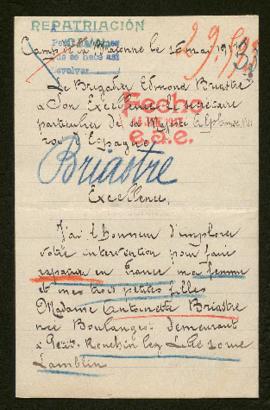 REPATRIACIÓN
Camp de la Mayenne le 16 mai 191
Le Brigadier Edmond Briastre
à Son Excellence le secrétaire
particulier de sa Majesté Alphonse XIII
roi d'Espagne
Fecha
e.d.e.
Briastre
Excellence,
J'ai l'honneur d'implorer
votre intervention pour faire
rapatrier en France ma femme
et mes trois petites filles
Madame Antoinette Briastre
née Boulanger demeurant
à Petit Ronchin lez Lille
Lamblin